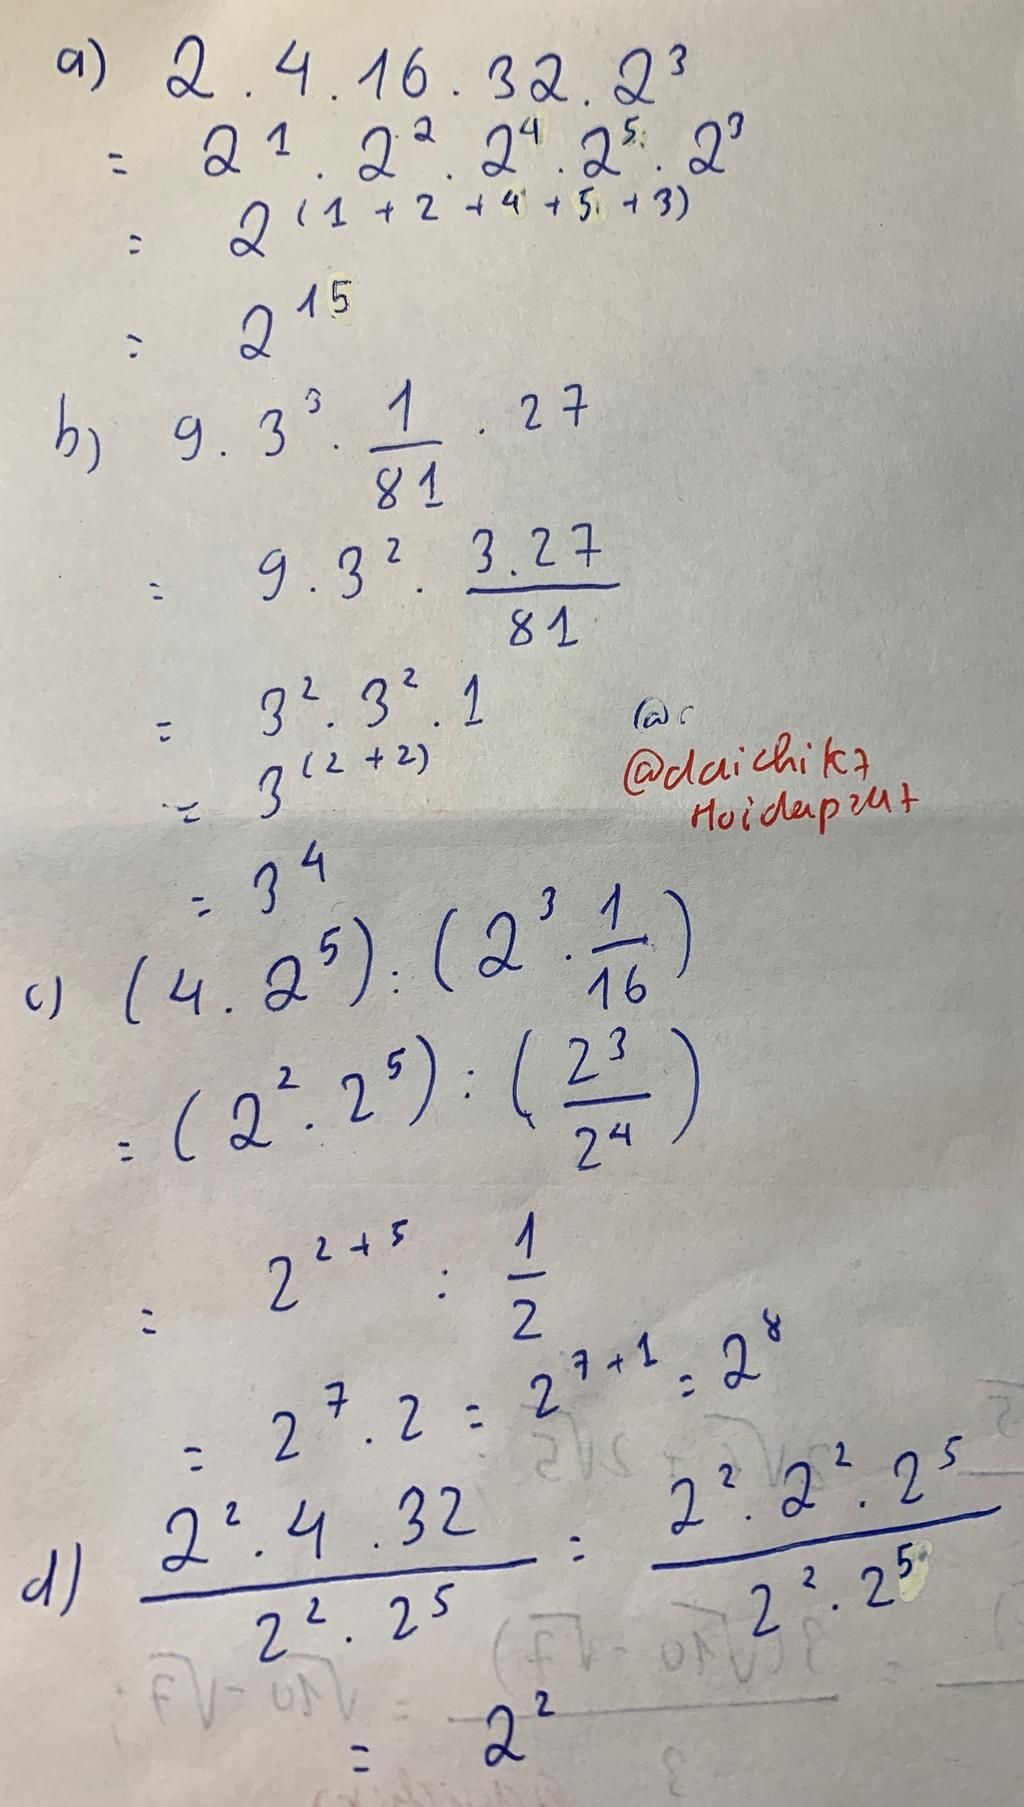 a) 2 . 4 . 16 . 32 . 2³
= 2¹ . 2² . 2⁴ . 2⁵ . 2³
= 2⁽¹ ⁺ ² ⁺ ⁴ ⁺ ⁵ ⁺ ³⁾
= 2¹⁵
b) 9 . 3³ . 1/81 . 27
= 9 . 3² . (3 . 27)/81
= 3² . 3² . 1
= 3⁽² ⁺ ²⁾
@daichik7
Hoidap247
= 3⁴
c) (4 . 2⁵) : (2³ . 1/16)
= (2² . 2⁵) : (2³/2⁴)
= 2²⁺⁵ : 1/2
= 2⁷ . 2 = 2⁷⁺¹ = 2⁸
d) (2² . 4 . 32)/(2² . 2⁵) = (2² . 2² . 2⁵)/(2² . 2⁵)
= 2²